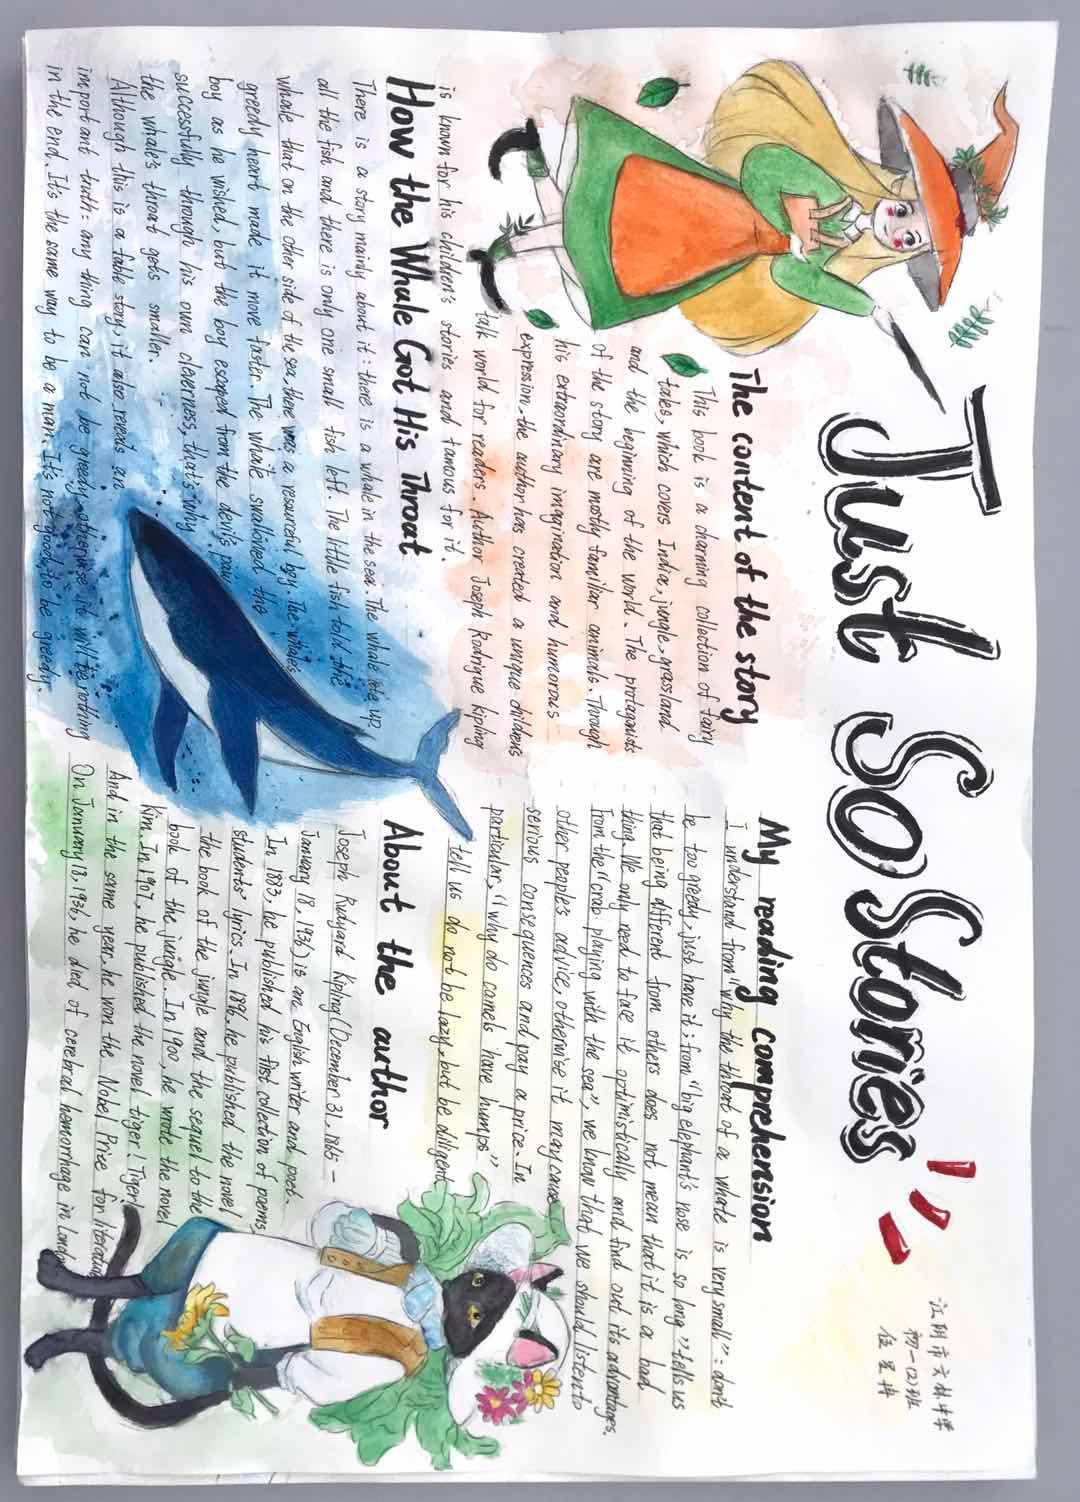 Just So Stories
江阴市文林中学
初一(2)班
The content of the story
This book is a charming collection of fairy
tales, which covers India, jungle, grassland
and the beginning of the world. The protagonists
of the story are mostly familiar animals. Through
his extraordinary imagination and humorous
expression, the author has created a unique children's
talk world for readers. Author Joseph Rodrigue Kipling
is known for his children's stories and famous for it.
How the Whale Got His Throat
There is a story mainly about it: there is a whale in the sea. The whale ate up
all the fish and there is only one small fish left. The little fish told the
whale that on the other side of the sea, there was a resourceful boy. The whales
greedy heart made it move faster. The whale swallowed the
boy as he wished, but the boy escaped from the devil's paw
successfully through his own cleverness, that's why
the whale's throat gets smaller.
Although this is a fable story, it also reveals an
important truth: any thing can not be greedy, otherwise it will be nothing
in the end. It's the same way to be a man. It's not good to be greedy.
My reading comprehension
I understand from "why the throat of a whale is very small": don't
be too greedy, just have it; from "big elephant's nose is so long" tells us
that being different from others does not mean that it is a bad
thing. We only need to face it optimistically and find out its advantages.
From the "crab playing with the sea", we know that we should listen to
other people's advice, otherwise it may cause
serious consequences and pay a price. In
particular, "Why do camels have humps"
tell us do not be lazy, but be diligent.
About the author
Joseph Rudyard Kipling (December 31, 1865 -
January 18, 1936) is an English writer and poet.
In 1883, he published his first collection of poems
students' lyrics. In 1896, he published the novel
the book of the jungle and the sequel to the
book of the jungle. In 1900, he wrote the novel
Kim. In 1907, he published the novel tiger! Tiger!
And in the same year, he won the Nobel Prize for literature
On January 18, 1936, he died of cerebral hemorrhage in London